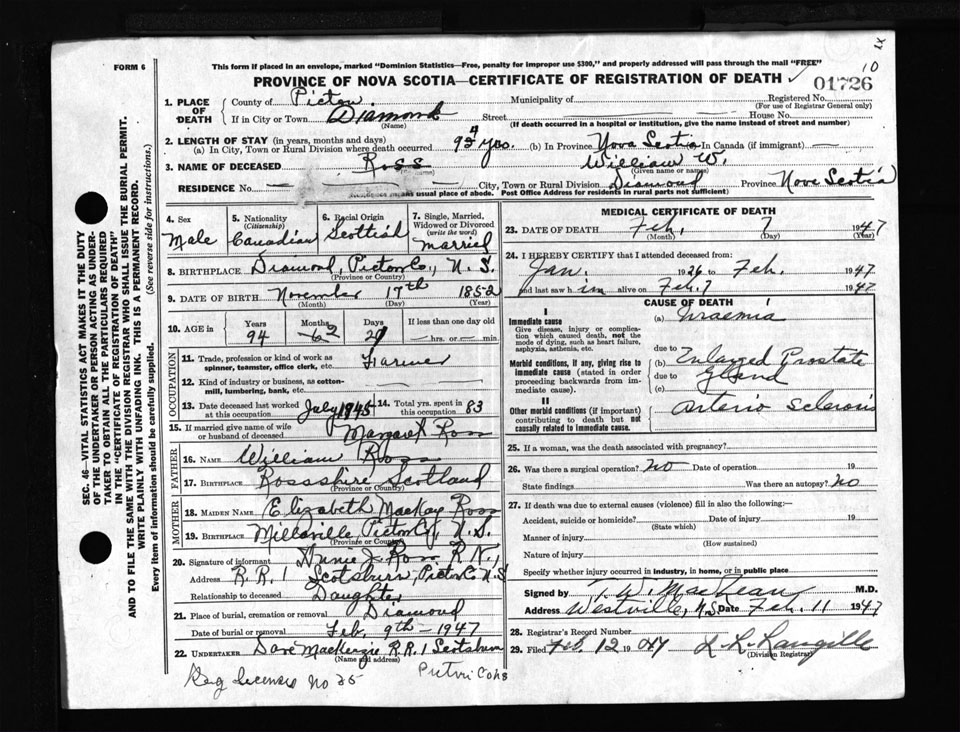 IX
10
FORM 6
This form if placed in an envelope, marked "Dominion Statistics—Free, penalty for improper use $300," and properly addressed will pass through the mail "FREE"
PROVINCE OF NOVA SCOTIA—CERTIFICATE OF REGISTRATION OF DEATH ✓
01726
SEC. 46—VITAL STATISTICS ACT MAKES IT THE DUTY
OF THE UNDERTAKER OR PERSON ACTING AS UNDER-
TAKER TO OBTAIN ALL THE PARTICULARS REQUIRED
IN THE "CERTIFICATE OF REGISTRATION OF DEATH"
AND TO FILE THE SAME WITH THE DIVISION REGISTRAR WHO SHALL ISSUE THE BURIAL PERMIT.
WRITE PLAINLY WITH UNFADING INK. THIS IS A PERMANENT RECORD.
Every item of information should be carefully supplied. (See reverse side for instructions.)
1. PLACE OF DEATH
County of Pictou Municipality of Registered No.
(For use of Registrar General only)
If in City or Town Diamond Street House No.
(Name) (If death occurred in a hospital or institution, give the name instead of street and number)
2. LENGTH OF STAY (in years, months and days)
(a) In City, Town or Rural Division where death occurred 94 yrs. (b) In Province Nova Scotia In Canada (if immigrant) —
3. NAME OF DECEASED Ross William W.
(Given name or names)
RESIDENCE No. — City, Town or Rural Division Diamond Province Nova Scotia
means usual place of abode. Post Office Address for residents in rural parts not sufficient)
4. Sex Male
5. Nationality (Citizenship) Canadian
6. Racial Origin Scottish
7. Single, Married, Widowed or Divorced (write the word) Married
8. BIRTHPLACE Diamond, Pictou Co., N.S.
(Province or Country)
9. DATE OF BIRTH November 17th 1852
(Month) (Day) (Year)
10. AGE in Years 94 Months 2 Days 20 If less than one day — hrs. or — min.
OCCUPATION
11. Trade, profession or kind of work as spinner, teamster, office clerk, etc. Farmer
12. Kind of industry or business, as cotton-mill, lumbering, bank, etc.
13. Date deceased last worked at this occupation July 1945
14. Total yrs. spent in this occupation 83
15. If married give name of wife or husband of deceased Margaret Ross
FATHER
16. NAME William Ross
17. BIRTHPLACE Rossshire Scotland
(Province or Country)
MOTHER
18. MAIDEN NAME Elizabeth MacKay Ross
19. BIRTHPLACE Millsville, Pictou Co, N.S.
(Province or Country)
20. Signature of informant Annie J. Ross R.N.,
Address R.R. 1 Scotsburn, Pictou Co N.S
Relationship to deceased Daughter
21. Place of burial, cremation or removal Diamond
Date of burial or removal Feb. 9th — 1947
22. UNDERTAKER Dave MacKenzie R.R.1 Scotsburn
(Name and address)
Pictou Co NS
Reg License No 25
MEDICAL CERTIFICATE OF DEATH
23. DATE OF DEATH Feb. 7 1947
(Month) (Day) (Year)
24. I HEREBY CERTIFY that I attended deceased from:
Jan. 1936 to Feb. 1947
and last saw him alive on Feb. 7 1947
CAUSE OF DEATH
I
Immediate cause
Give disease, injury or complication which caused death, not the mode of dying, such as heart failure, asphyxia, asthenia, etc.
(a) Uraemia
due to
Morbid conditions, if any, giving rise to immediate cause (stated in order proceeding backwards from immediate cause).
(b) Enlarged Prostate
due to Gland
(c)
II
Other morbid conditions (if important) contributing to death but not causally related to immediate cause.
Arterio Sclerosis
25. If a woman, was the death associated with pregnancy?
26. Was there a surgical operation? No Date of operation 19
State findings Was there an autopsy? No
27. If death was due to external causes (violence) fill in also the following:—
Accident, suicide or homicide? Date of injury 19
(State which)
Manner of injury
(How sustained)
Nature of injury
Specify whether injury occurred in industry, in home, or in public place
Signed by T. W. MacLean M.D.
Address Westville, N.S. Date Feb. 11 1947
28. Registrar's Record Number
29. Filed Feb. 12 1947 L. R. Langille
(Division Registrar)